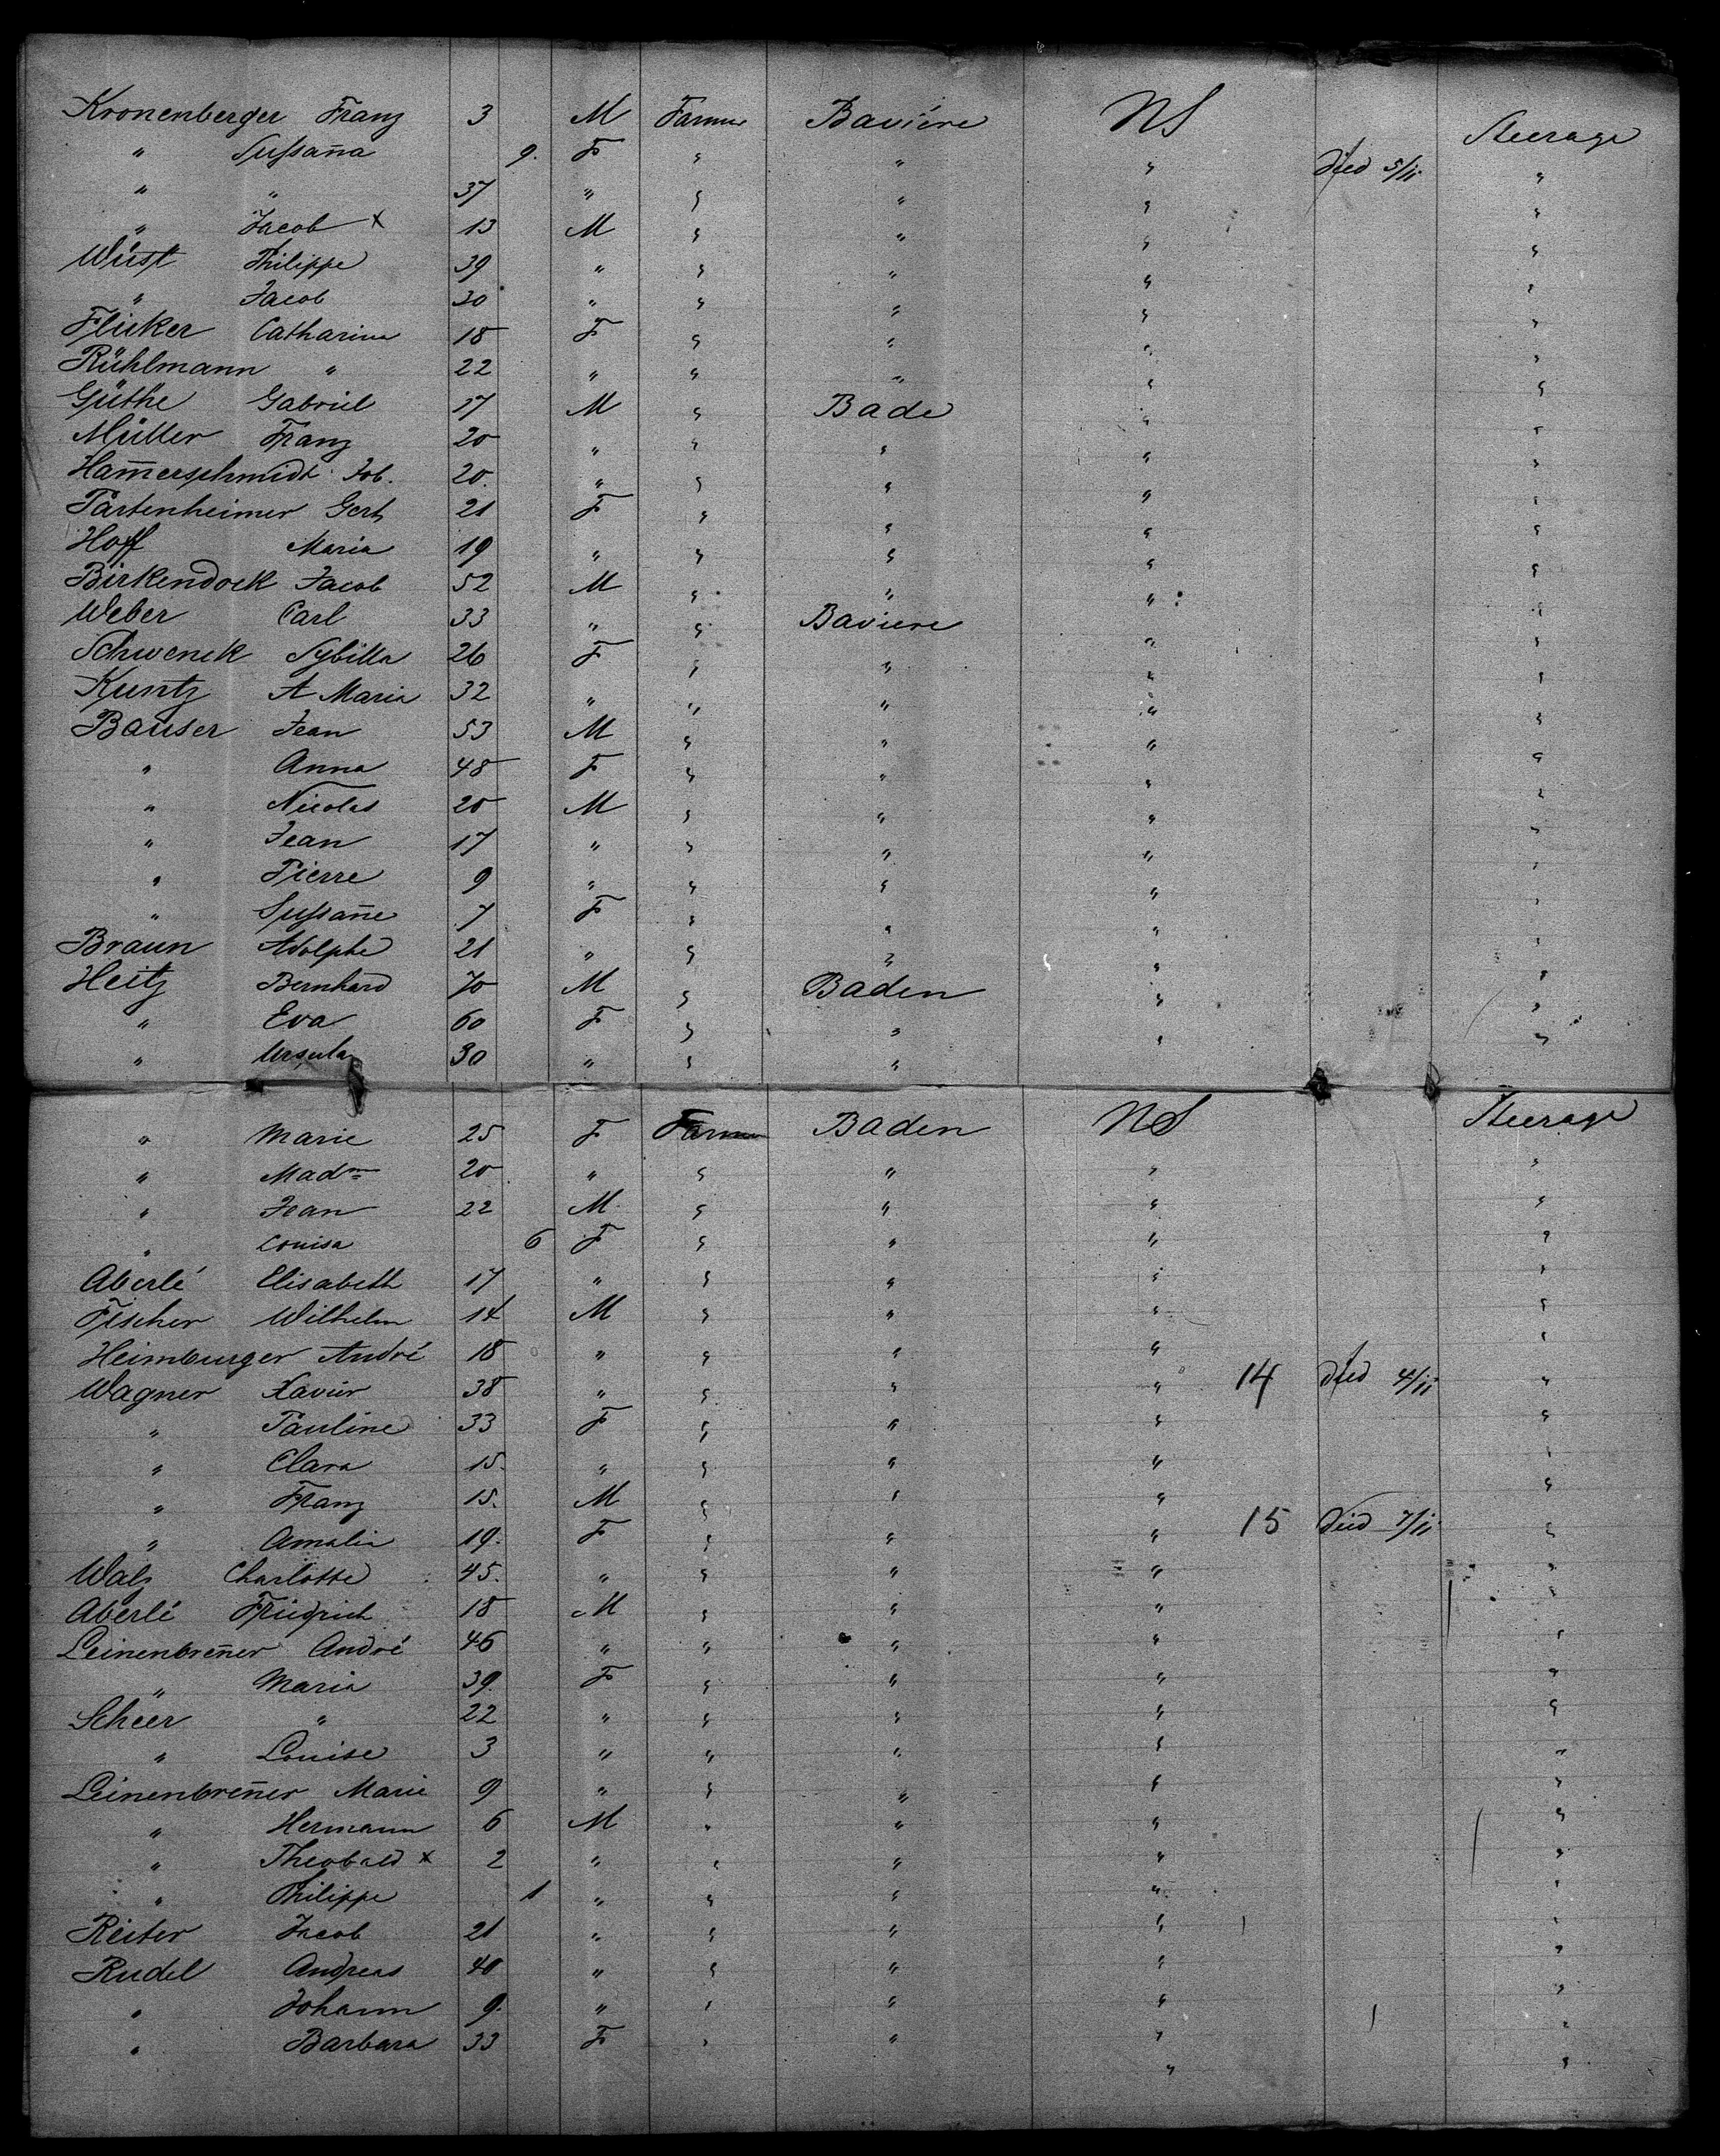 Kronenberger Franz 3 M Farmer Baviére NS Steerage
" Sussana 9. F " " " Died 5/11 "
" " 37 " " " " "
" Jacob x 13 M " " " "
Wüst Philippe 39 " " " " "
" Jacob 30 " " " " "
Flicker Catharina 18 F " " " "
Rühlmann " 22 " " " " "
Güthe Gabriel 17 M " Bade " "
Müller Franz 20 " " " " "
Ham̄erschmidt Job. 20. " " " " "
Partenheimer Gert 21 F " " " "
Hoff Maria 19 " " " " "
Birkendock Jacob 52 M " " " "
Weber Carl 33 " " Baviere " "
Schwenck Sybilla 26 F " " " "
Kuntz A Maria 32 " " " " "
Bauser Jean 53 M " " " "
" Anna 48 F " " " "
" Nicolas 20 M " " " "
" Jean 17 " " " " "
" Pierre 9 " " " " "
" Sussan̄e 7 F " " " "
Braun Adolphe 21 " " " " "
Heitz Bernhard 70 M " Baden " "
" Eva 60 F " " " "
" Ursula 30 " " " " "
" Marie 25 F Farmer Baden NS Steerage
" Madne 20 " " " " "
" Jean 22 M " " " "
" Louisa 6 F " " " "
Aberlé Elisabeth 17 " " " " "
Fischer Wilhelm 14 M " " " "
Heimburger André 18 " " " " "
Wagner Xavier 38 " " " " 14 Died 4/11 "
" Pauline 33 F " " " "
" Clara 15. " " " " "
" Franz 15. M " " " "
" Amalia 19. F " " " 15 Died 7/11 "
Walz Charlotte 45. " " " " "
Aberlé Friedrich 18 M " " " "
Leinenbren̄er André 46 " " " " "
" Maria 39. F " " " "
Scheer " 22 " " " " "
" Louise 3 " " " " "
Leinenbren̄er Marie 9 " " " " "
" Hermann 6 M " " " "
" Theobald x 2 " " " " "
" Philippe 1 " " " " "
Reiter Jacob 21 " " " " "
Rudel Andreas 40 " " " " "
" Johann 9. " " " " "
" Barbara 33 F " " " "